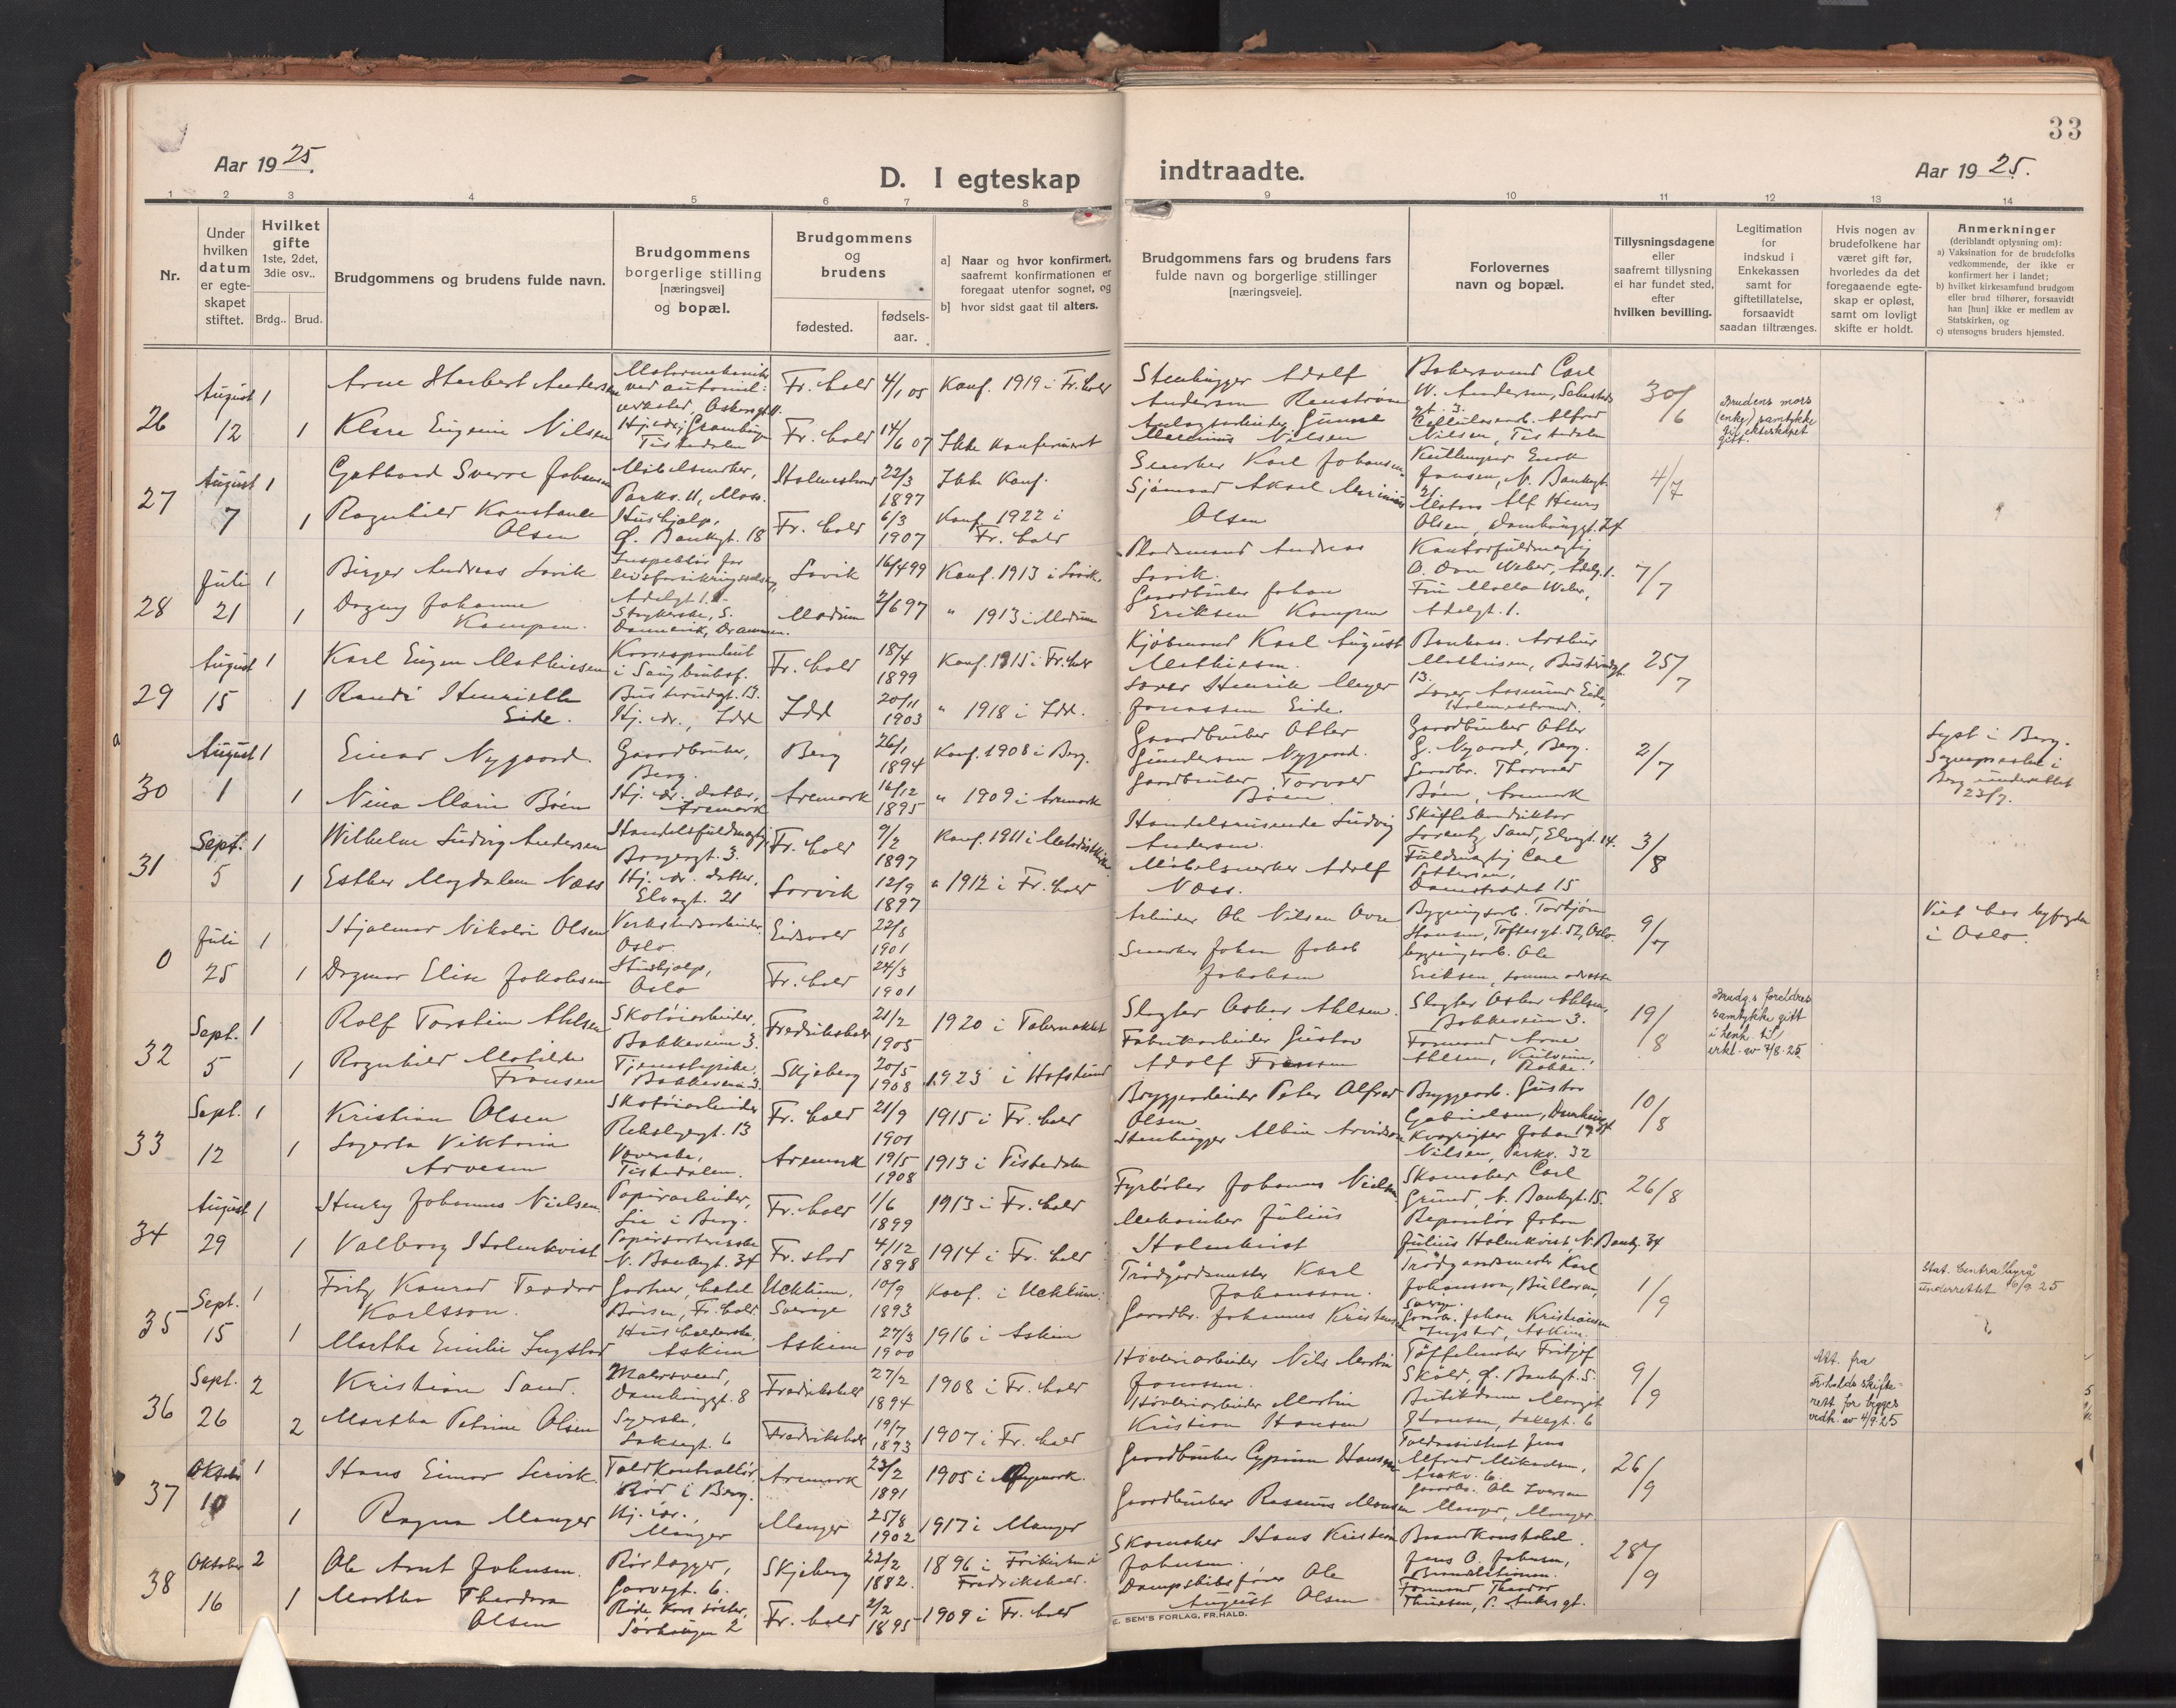 33
Aar 1925.
D. I egteskap indtraadte.
Aar 1925.
1 2 3 4 5 6 7 8 9 10 11 12 13 14
Nr.
Under hvilken datum er egte-skapet stiftet.
Hvilket gifte 1ste, 2det, 3die osv..
Brdg.. Brud.
Brudgommens og brudens fulde navn.
Brudgommens borgerlige stilling [næringsvei] og bopæl.
Brudgommens og brudens
fødested.
fødsels-aar.
a] Naar og hvor konfirmert, saafremt konfirmationen er foregaat utenfor sognet, og
b] hvor sidst gaat til alters.
Brudgommens fars og brudens fars fulde navn og borgerlige stillinger [næringsveie].
Forlovernes navn og bopæl.
Tillysningsdagene eller saafremt tillysning ei har fundet sted, efter hvilken bevilling.
Legitimation for indskud i Enkekassen samt for giftetillatelse, forsaavidt saadan tiltrænges.
Hvis nogen av brudefolkene har været gift før, hvorledes da det foregaaende egte-skap er opløst, samt om lovligt skifte er holdt.
Anmerkninger (deriblandt oplysning om):
a) Vaksination for de brudefolks vedkommende, der ikke er konfirmert her i landet;
b) hvilket kirkesamfund brudgom eller brud tilhører, forsaavidt han [hun] ikke er medlem av Statskirken, og
c) utensogns bruders hjemsted.
26 August 12 1 Arne Herbert Andersen Fr.hald 4/1 05 Konf. 1919 i Fr.hald
Stenhugger Adolf Andersen
30/6
1 Klara Eugenie Nilsen Tistedalen Fr.hald 14/6 07 Ikke konfirmert
Marinius Nilsen
Alfred Nilsen, Tistedalen
Brudens mors (enke) samtykke til ekteskapet gitt.
27 August 7 1 Gotthard Sverre Johansen Møbelsnekker, Parkv. 11, Moss. Holmestrand 22/3 1897 Ikke konf.
Snekker Karl Johansen
4/7
1 Ragnhild Konstanse Olsen Hushjelp, Ø. Bankgt. 18 Fr.hald 6/3 1907 Konf. 1922 i Fr.hald
Sjømand Aksel Marinius Olsen
Alf Henry Olsen, Damhauggt. 24
28 Juli 21 1 Birger Andreas Lorvik Inspektør for livsforsikringsselsk, Adelgt. 1. 16/4 99 Konf. 1913 i
Andreas
Kontorfuldmægtig
7/7
1 Dagny Johanne Kampen. Drammen. Modum 2/6 97 " 1913 i Modum
Gaardbruker Johan Eriksen Kampen
Adelgt. 1.
29 August 15 1 Karl Eugen Mathiesen Korrespondent Fr.hald 18/4 1899 Konf. 1915 i Fr.hald
Kjøbmand Karl August Mathiesen.
Arthur Mathiesen, 13.
25/7
1 Randi Henriette Eide. Hj. dr., Idd Idd 20/11 1903 " 1918 i Idd.
Henrik Meyer Jonassen Eide.
Eide, Holmestrand.
30 August 1 1 Einar Nygaard. Gaardbruker, Berg. Berg 26/1 1894 Konf. 1908 i Berg.
Gaardbruker Otter Gundersen Nygaard.
Gaardbruker Otter G. Nygaard, Berg.
2/7
Lyst i Berg. Sognepresten i Berg underrettet 23/7.
1 Nina Marie Böen Hj. dr. datter, Aremark Aremark 16/12 1895 " 1909 i Aremark
Gaardbruker Torvald Böen
Gaardbr. Thorvald Böen, Aremark
31 Sept. 5 1 Wilhelm Ludvig Andersen Handelsfuldmægtig, Borgergt. 3. Fr.hald 9/2 1897 Konf. 1911 i Metodistkirken
Handelsreisende Ludvig Andersen.
Lorentz Sand, Elvegt. 14.
3/8
1 Esther Magdalene Næss Hj. dr. datter, Elvegt. 21 12/9 1897 " 1912 i Fr.hald
Møbelsnekker Adolf Næss.
Fuldmægtig Carl Pettersen, 15
0 Juli 25 1 Hjalmar Nikolai Olsen Verkstedsarbeider, Oslo. Eidsvold 22/8 1901
Arbeider Ole Nilsen
Bygningsarb. Torbjørn Hansen, Toftesgt. 52, Oslo.
9/7
Viet hos byfogden i Oslo.
1 Dagmar Elise Jakobsen Hushjelp, Oslo Fr.hald 24/3 1901
Snekker Johan Jakob Jakobsen
bygningsarb. Ole Eriksen, samme adresse
32 Sept. 5 1 Rolf Torstein Ahlsen Skotøiarbeider, Bakkeveien 3. Fredrikshald 21/2 1905 1920 i Tabernaklet
Slagter Oskar Ahlsen.
Slagter Oskar Ahlsen, Bakkeveien 3.
19/8
Brudg.s foreldres samtykke gitt i henh. til erkl. av 7/8-25
1 Ragnhild Matilde Fransen Tjenestepike, Bakkeveien 3. Skjeberg 20/5 1908 1923 i Hafslund
Fabrikarbeider Gustav Adolf Fransen
Formand Arne Ahlsen,
33 Sept. 12 1 Kristian Olsen Skotøiarbeider Rebslagergt. 13 Fr.hald 21/9 1901 1915 i Fr.hald
Bryggearbeider Peter Alfred Olsen
Bryggearb. Gustav
10/8
1 Viktoria Arvesen Væverske, Tistedalen. Aremark 19/5 1908 1913 i Tistedalen
Stenhugger Albin Arvidsen
Johan Nilsen, Parkv. 32
34 August 29 1 Henry Johannes Nielsen. Papirarbeider, Lie i Berg. Fr.hald 1/6 1899 1913 i Fr.hald
Fyrbøter Johannes Nielsen
Skomaker Carl Grund, N. Bankgt. 15.
26/8
1 Valborg Holmkvist N. Bankgt. 34 Fr.stad 4/12 1898 1914 i Fr.hald
Mekaniker Julius Holmkvist
Reparatør Johan Julius Holmkvist, N. Bankg. 34
35 Sept. 15 1 Fritz Konrad Teodor Karlsson. Gartner, hotel Börsen, Fr.hald. Ucklum, Sverige 10/9 1893 Konf. i Ucklum.
Trädgårdsmester Karl Johansson.
Trädgaardsmester Karl Johansson, Sverige.
1/9
Stat. Centralbyrå underrettet 10/9 25
1 Martha Emilie Ingstad Husholderske, Askim Askim 27/3 1900 1916 i Askim
Gaardbr. Johannes Kristensen
Gaardbr. Johan Kristiansen Ingstad, Askim.
36 Sept. 26 2 Kristian Sand. Malersvend, Damhauggt. 8 Fredrikshald 27/2 1894 1908 i Fr.hald
Høveriarbeider Nils Martin Jonassen.
Tøffelmaker Fritjof Sköld, Ø. Bankgt. 5.
9/9
Att. fra Fr.halds skifterett for begges vedk. av 4/9-25
2 Martha Petrine Olsen Syerske, Laksegt. 6 Fredrikshald 19/7 1893 1907 i Fr.hald
Høveriarbeider Martin Kristian Hansen
Butikdame Margit Hansen, Laksegt. 6
37 Oktober 10 1 Hans Einar Lervik. Toldkontrollør, Rød i Berg. Aremark 23/2 1891 1905 i Øymark.
Gaardbruker Hansen
Toldassistent Jens Alfred Mikaelsen,
26/9
1 Ragna Manger Manger Manger 25/8 1902 1917 i Manger
Gaardbruker Rasmus Monsen
Gaardbr. Ole Iversen Manger, Manger.
38 Oktober 16 2 Ole Arnt Johnsen. Rørlægger, Garvergt. 6. Skjeberg 22/2 1882. 1896 i Frikirken i Fredrikshald.
Skomaker Hans Kristian Johnsen.
Brandkonstabel Jens O. Johnsen, Brandstationen.
28/9
1 Martha Theodora Olsen Røde Kors søster, 2 Fr.hald 2/2 1895 1909 i Fr.hald
Dampskibsfører Ole August Olsen
Formand Theodor Thuesen,
E. SEM'S FORLAG, FR.HALD.